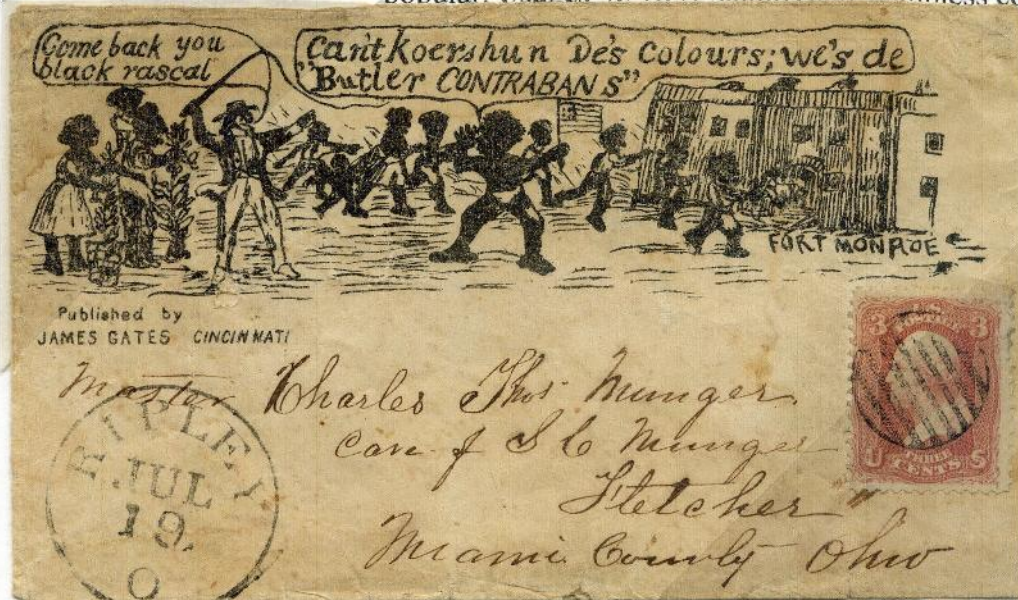 Come back you
black rascal
Can't Koershun De's Colours; we's de
"Butler CONTRABANS"
FORT MONROE
Published by
JAMES GATES CINCINNATI
Master Charles Thos Munger
Care of S C Munger
Fletcher
Miami County Ohio
RIPLEY
JUL
19
O
3 3
THREE
U CENTS S